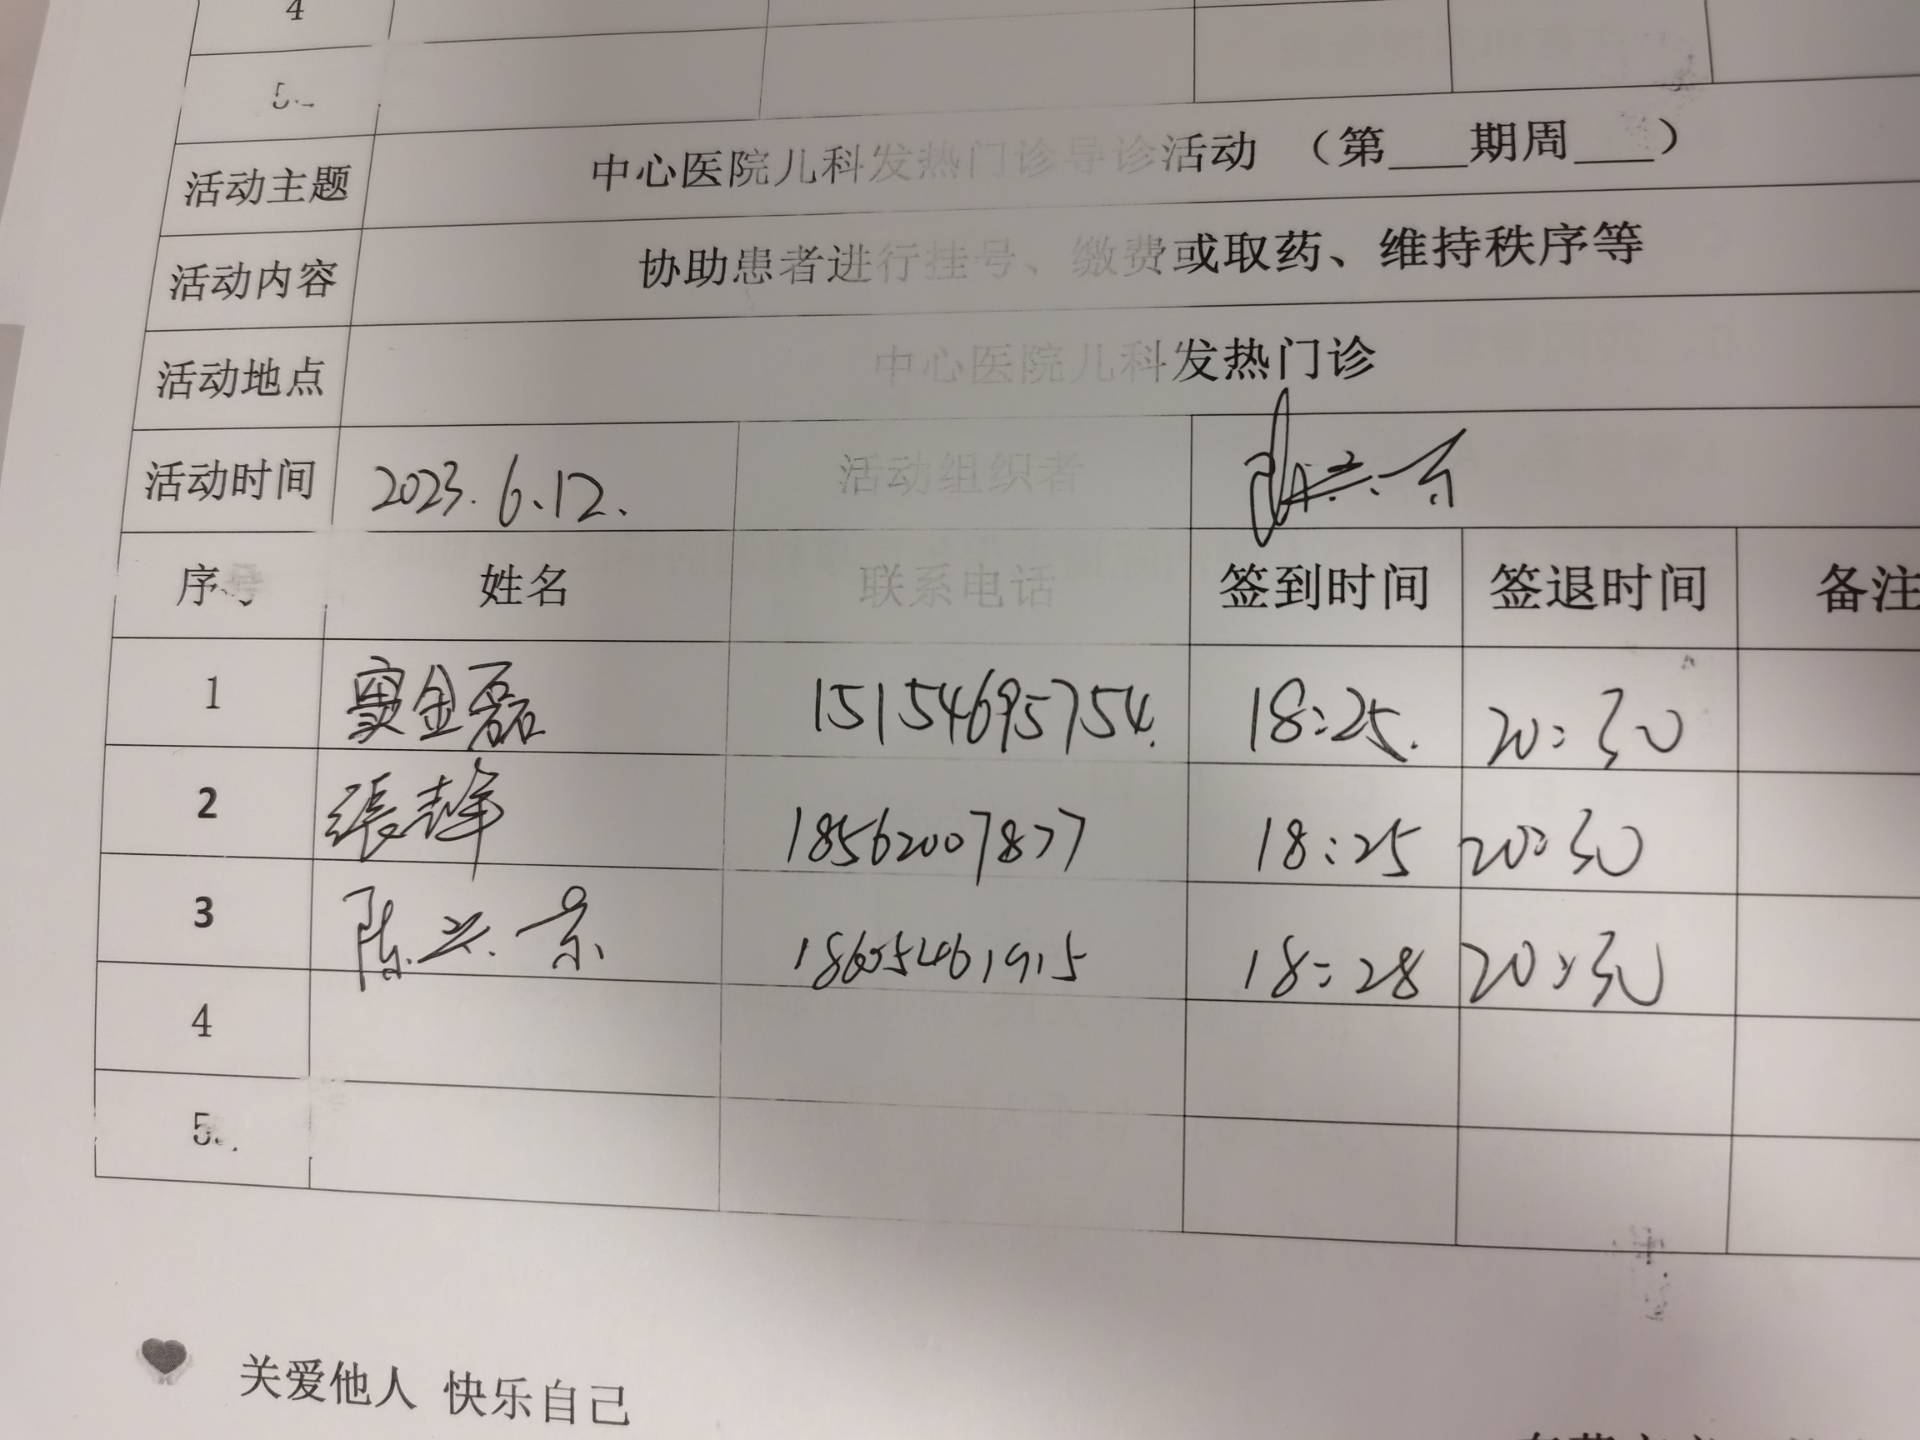 4
5
活动主题 中心医院儿科发热门诊导诊活动 （第___期周___）
活动内容 协助患者进行挂号、缴费或取药、维持秩序等
活动地点 中心医院儿科发热门诊
活动时间 2023.6.12. 活动组织者 陈兴京
序号 姓名 联系电话 签到时间 签退时间 备注
1 窦金磊 15154695754. 18:25. 20:30
2 張峰 18562007877 18:25 20:30
3 陈兴京 18605461915 18:28 20:30
4
5
关爱他人 快乐自己